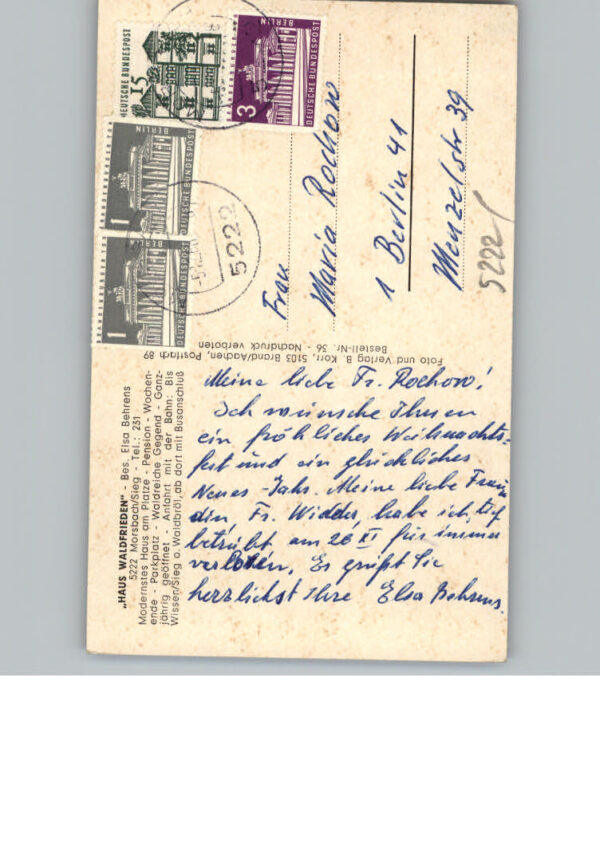 „HAUS WALDFRIEDEN" - Bes. Elsa Behrens
5222 Morsbach/Sieg - Tel.: 231
Modernstes Haus am Platze - Pension - Wochen-
ende - Parkplatz - Waldreiche Gegend - Ganz-
jährig geöffnet - Anfahrt mit der Bahn: Bis
Wissen/Sieg o. Waldbröl, ab dort mit Busanschluß
Meine liebe Fr. Rochow!
Ich wünsche Ihnen
ein fröhliches Weihnachts-
fest und ein glückliches
Neues-Jahr. Meine liebe Freun
din, Fr. Widder, habe ich tief
betrübt am 26 XI für immer
verloren. Es grüßt Sie
herzlichst Ihre Elsa Behrens.
Foto und Verlag B. Korr, 5103 Brand/Aachen, Postfach 89
Bestell-Nr. 36 - Nachdruck verboten
Frau
Maria Rochow
1 Berlin 41
Menzelstr 39
5222
DEUTSCHE BUNDESPOST
15
3
BERLIN
DEUTSCHE BUNDESPOST
1
BERLIN
DEUTSCHE BUNDESPOST
BRANDENBURGER TOR
1
BERLIN
DEUTSCHE BUNDESPOST
BRANDENBURGER TOR
5222